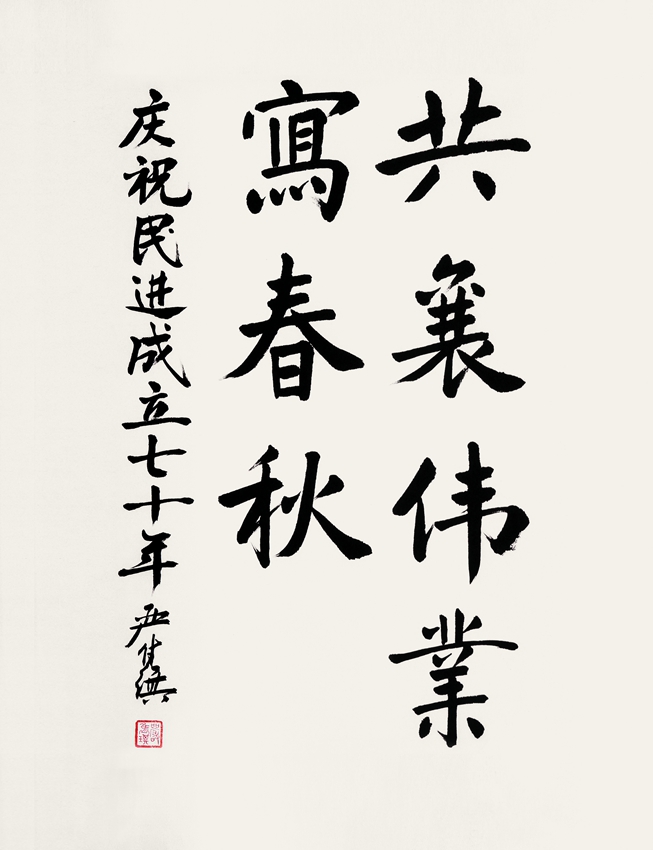 共襄伟業
寫春秋
庆祝民进成立七十年
严隽琪